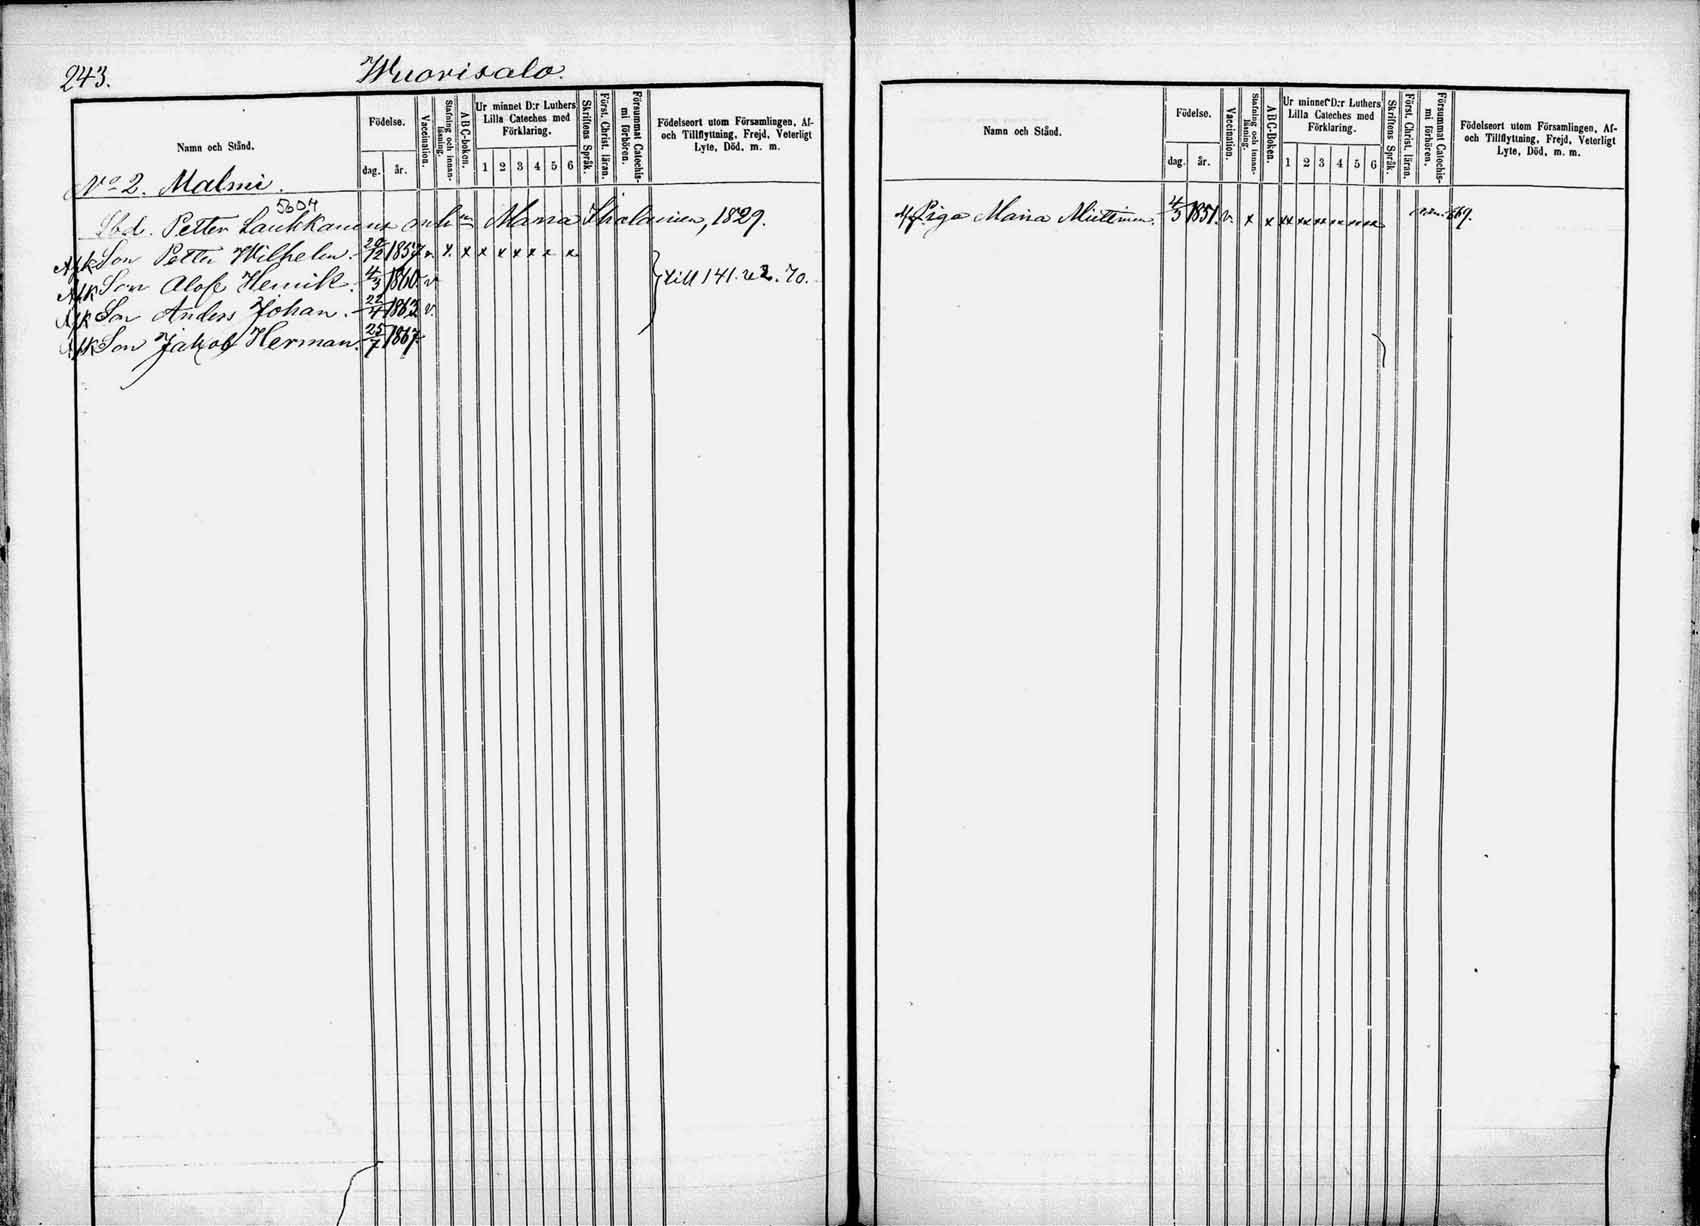 243.
Wuorisalo.
Namn och Stånd.
Födelse.
dag.
år.
Vaccination.
Stafning och innanläsning.
ABC-boken.
Ur minnet D:r Luthers Lilla Cateches med Förklaring.
1 2 3 4 5 6
Skriftens Språk.
Först. Christ. läran.
Försummat Catechismi förhören.
Födelseort utom Församlingen, Af- och Tillflyttning, Frejd, Veterligt Lyte, Död, m. m.
No 2. Malmi.
5604
Petter Laukkanens Maria 1829.
Afk Son Petter Wilhelm. 20/12 1857 v. x. x x x x x x x
Afk Son Olof Henrik. 4/3 1860. v. till 141. 70.
Afk Son Anders Johan. 22/4 1863 v.
Afk Son Jakob Herman. 25/7 1867
Namn och Stånd.
Födelse.
dag.
år.
Vaccination.
Stafning och innanläsning.
ABC-Boken.
Ur minnet D:r Luthers Lilla Cateches med Förklaring.
1 2 3 4 5 6
Skriftens Språk.
Först. Christ. läran.
Försummat Catechismi förhören.
Födelseort utom Församlingen, Af- och Tillflyttning, Frejd, Veterligt Lyte, Död, m. m.
Piga Maria Miettinen. 4/5 1851. v. x x xx xx xx xx xx xx 69.